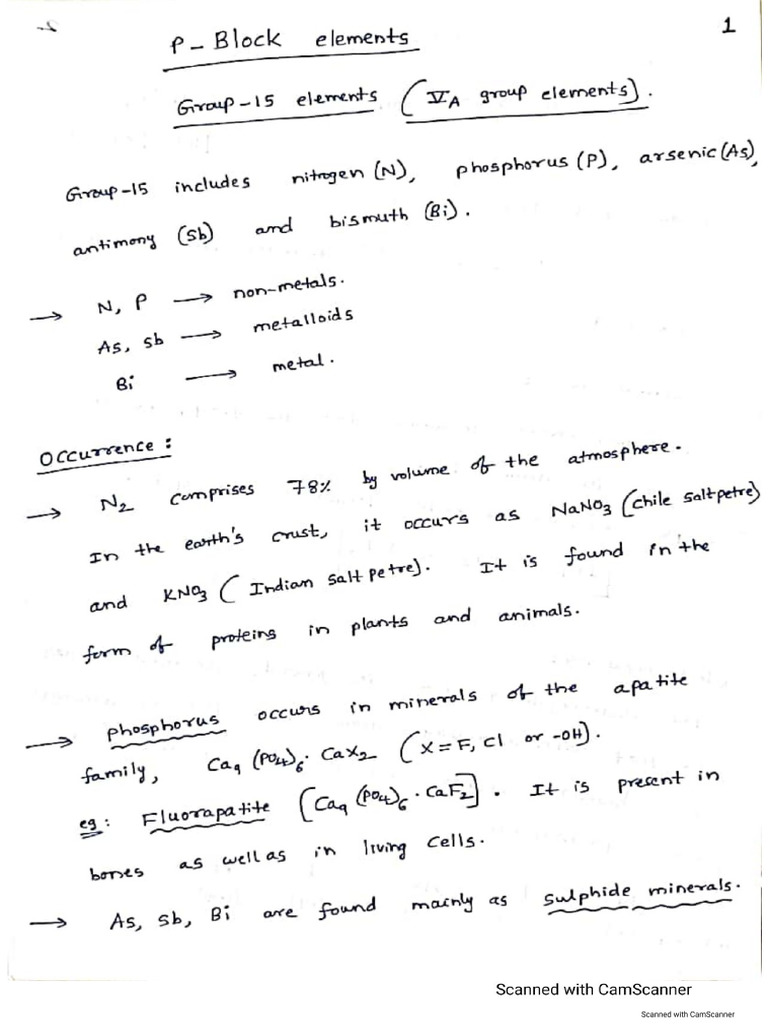 1
P-Block elements
Group-15 elements (VA group elements).
Group-15 includes nitrogen (N), phosphorus (P), arsenic (As),
antimony (Sb) and bismuth (Bi).
→ N, P → non-metals.
As, Sb → metalloids
Bi → metal.
Occurrence :
→ N2 comprises 78% by volume of the atmosphere.
In the earth's crust, it occurs as NaNO3 (chile saltpetre)
and KNO3 ( Indian salt petre). It is found in the
form of proteins in plants and animals.
→ phosphorus occurs in minerals of the apatite
family, Ca9 (PO4)6. CaX2 (X = F, Cl or -OH).
eg: Fluorapatite [Ca9 (PO4)6 . CaF2] . It is present in
bones as well as in living cells.
→ As, Sb, Bi are found mainly as sulphide minerals.
Scanned with CamScanner
Scanned with CamScanner